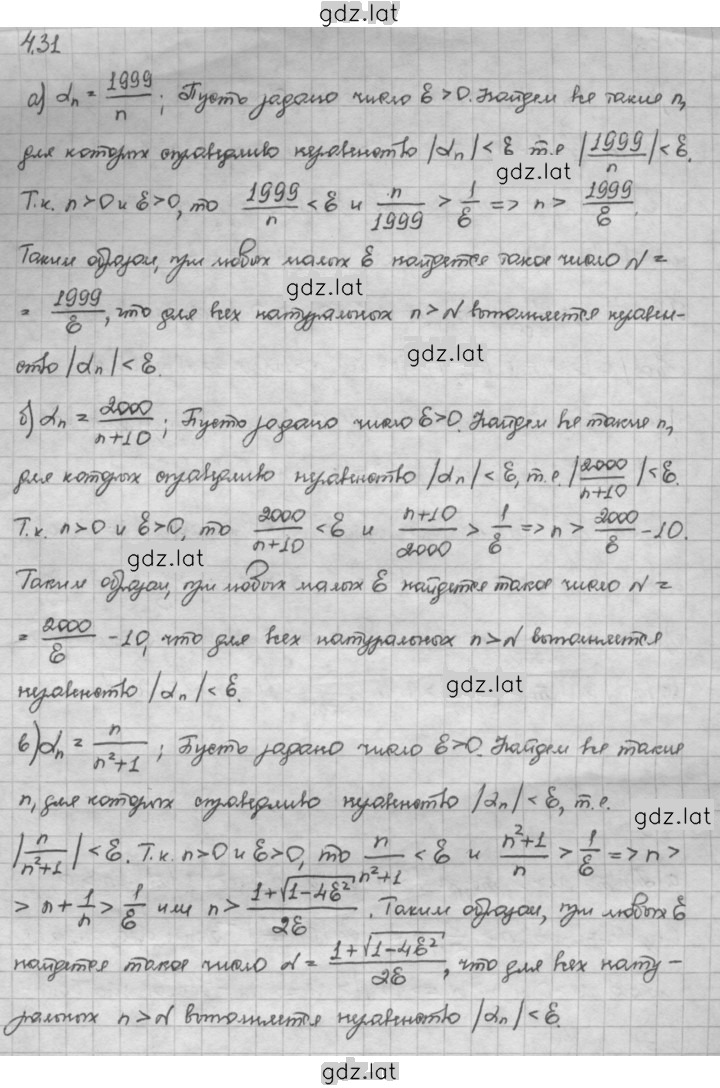 gdz.lat
4.31
а) αn = 1999/n ; Пусть задано число ε > 0. Найдем все такие n,
для которых справедливо неравенство |αn| < ε т.е. |1999/n| < ε.
gdz.lat
Т.к. n > 0 и ε > 0, то 1999/n < ε и n/1999 > 1/ε => n > 1999/ε.
Таким образом, при любых малых ε найдется такое число N =
gdz.lat
= 1999/ε, что для всех натуральных n > N выполняется неравен-
gdz.lat
ство |αn| < ε.
б) αn = 2000/(n+10) ; Пусть задано число ε > 0. Найдем все такие n,
для которых справедливо неравенство |αn| < ε, т.е. |2000/(n+10)| < ε.
Т.к. n > 0 и ε > 0, то 2000/(n+10) < ε и (n+10)/2000 > 1/ε => n > 2000/ε - 10.
gdz.lat
Таким образом, при любых малых ε найдется такое число N =
= 2000/ε - 10, что для всех натуральных n > N выполняется
gdz.lat
неравенство |αn| < ε.
в) αn = n/(n²+1) ; Пусть задано число ε > 0. Найдем все такие
n, для которых справедливо неравенство |αn| < ε, т.е.
gdz.lat
|n/(n²+1)| < ε. Т.к. n > 0 и ε > 0, то n/(n²+1) < ε и (n²+1)/n > 1/ε => n >
> n + 1/n > 1/ε или n > (1+√(1-4ε²))/(2ε). Таким образом, при любых ε
найдется такое число N = (1+√(1-4ε²))/(2ε), что для всех нату-
ральных n > N выполняется неравенство |αn| < ε.
gdz.lat